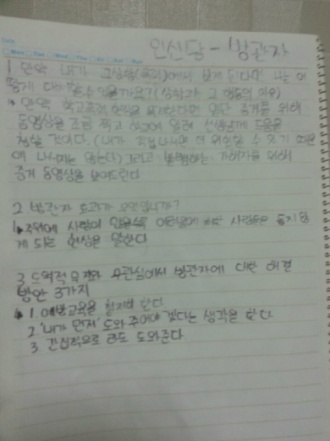 인신당 - 방관자
1 만약 내가 그상황(폭력)에서 보게 된다면 나는 어
떻게 대처할 수 있을까요? (상황과 그 행동의 이유)
만약 학교폭력 현장을 목격한다면 일단 증거를 위해
동영상을 조금 찍고 선생님께 도움을
청할 것이다. (내가 직접 나서면 더 위험할 수 있기 때문
에 나서지는 않는다) 그리고 가해자를 위해
증거 동영상을 보여드린다
2 방관자 효과가 무엇입니까?
주위에 사람이 많을수록 사람들은 돕지 않
게 되는 현상을 말한다
3 도덕적 무관심에서 방관자에 대한 해결
방안 3가지
1 예방교육을 철저히 한다
2 '내가 먼저' 도와주어야겠다는 생각을 한다
3. 간접적으로 라도 도와준다